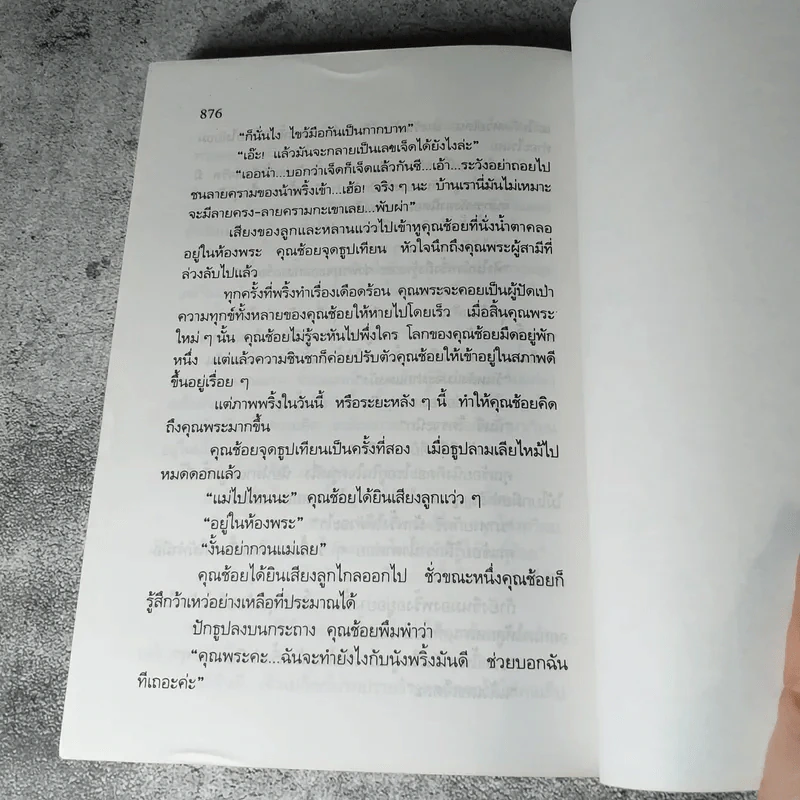 876
“ก็นั่นไง ไขว้มือกันเป็นกากบาท”
“เอ๊ะ! แล้วมันจะกลายเป็นเลขเจ็ดได้ยังไงล่ะ”
“เออน่า...บอกว่าเจ็ดก็เจ็ดแล้วกันซี...เอ้า...ระวังอย่าถอยไป
ชนลายครามของน้าพริ้งเข้า...เฮ้อ! จริง ๆ นะ บ้านเรานี่มันไม่เหมาะ
จะมีลายครง-ลายครามกะเขาเลย...พับผ่า”
เสียงของลูกและหลานแว่วไปเข้าหูคุณช้อยที่นั่งน้ำตาคลอ
อยู่ในห้องพระ คุณช้อยจุดธูปเทียน หัวใจนึกถึงคุณพระผู้สามีที่
ล่วงลับไปแล้ว
ทุกครั้งที่พริ้งทำเรื่องเดือดร้อน คุณพระจะคอยเป็นผู้ปัดเป่า
ความทุกข์ทั้งหลายของคุณช้อยให้หายไปโดยเร็ว เมื่อสิ้นคุณพระ
ใหม่ ๆ นั้น คุณช้อยไม่รู้จะหันไปพึ่งใคร โลกของคุณช้อยมืดอยู่พัก
หนึ่ง แต่แล้วความชินชาก็ค่อยปรับตัวคุณช้อยให้เข้าอยู่ในสภาพดี
ขึ้นอยู่เรื่อย ๆ
แต่ภาพพริ้งในวันนี้ หรือระยะหลัง ๆ นี้ ทำให้คุณช้อยคิด
ถึงคุณพระมากขึ้น
คุณช้อยจุดธูปเทียนเป็นครั้งที่สอง เมื่อธูปลามเลียไหม้ไป
หมดดอกแล้ว
“แม่ไปไหนนะ” คุณช้อยได้ยินเสียงลูกแว่ว ๆ
“อยู่ในห้องพระ”
“งั้นอย่ากวนแม่เลย”
คุณช้อยได้ยินเสียงลูกไกลออกไป ชั่วขณะหนึ่งคุณช้อยก็
รู้สึกว้าเหว่อย่างเหลือที่ประมาณได้
ปักธูปลงบนกระถาง คุณช้อยพึมพำว่า
“คุณพระคะ...ฉันจะทำยังไงกับนังพริ้งมันดี ช่วยบอกฉัน
ทีเถอะค่ะ”